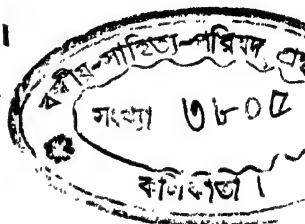 বঙ্গীয়-সাহিত্য-পরিষদ
সংখ্যা ৩৮০৫
কলিকাতা।